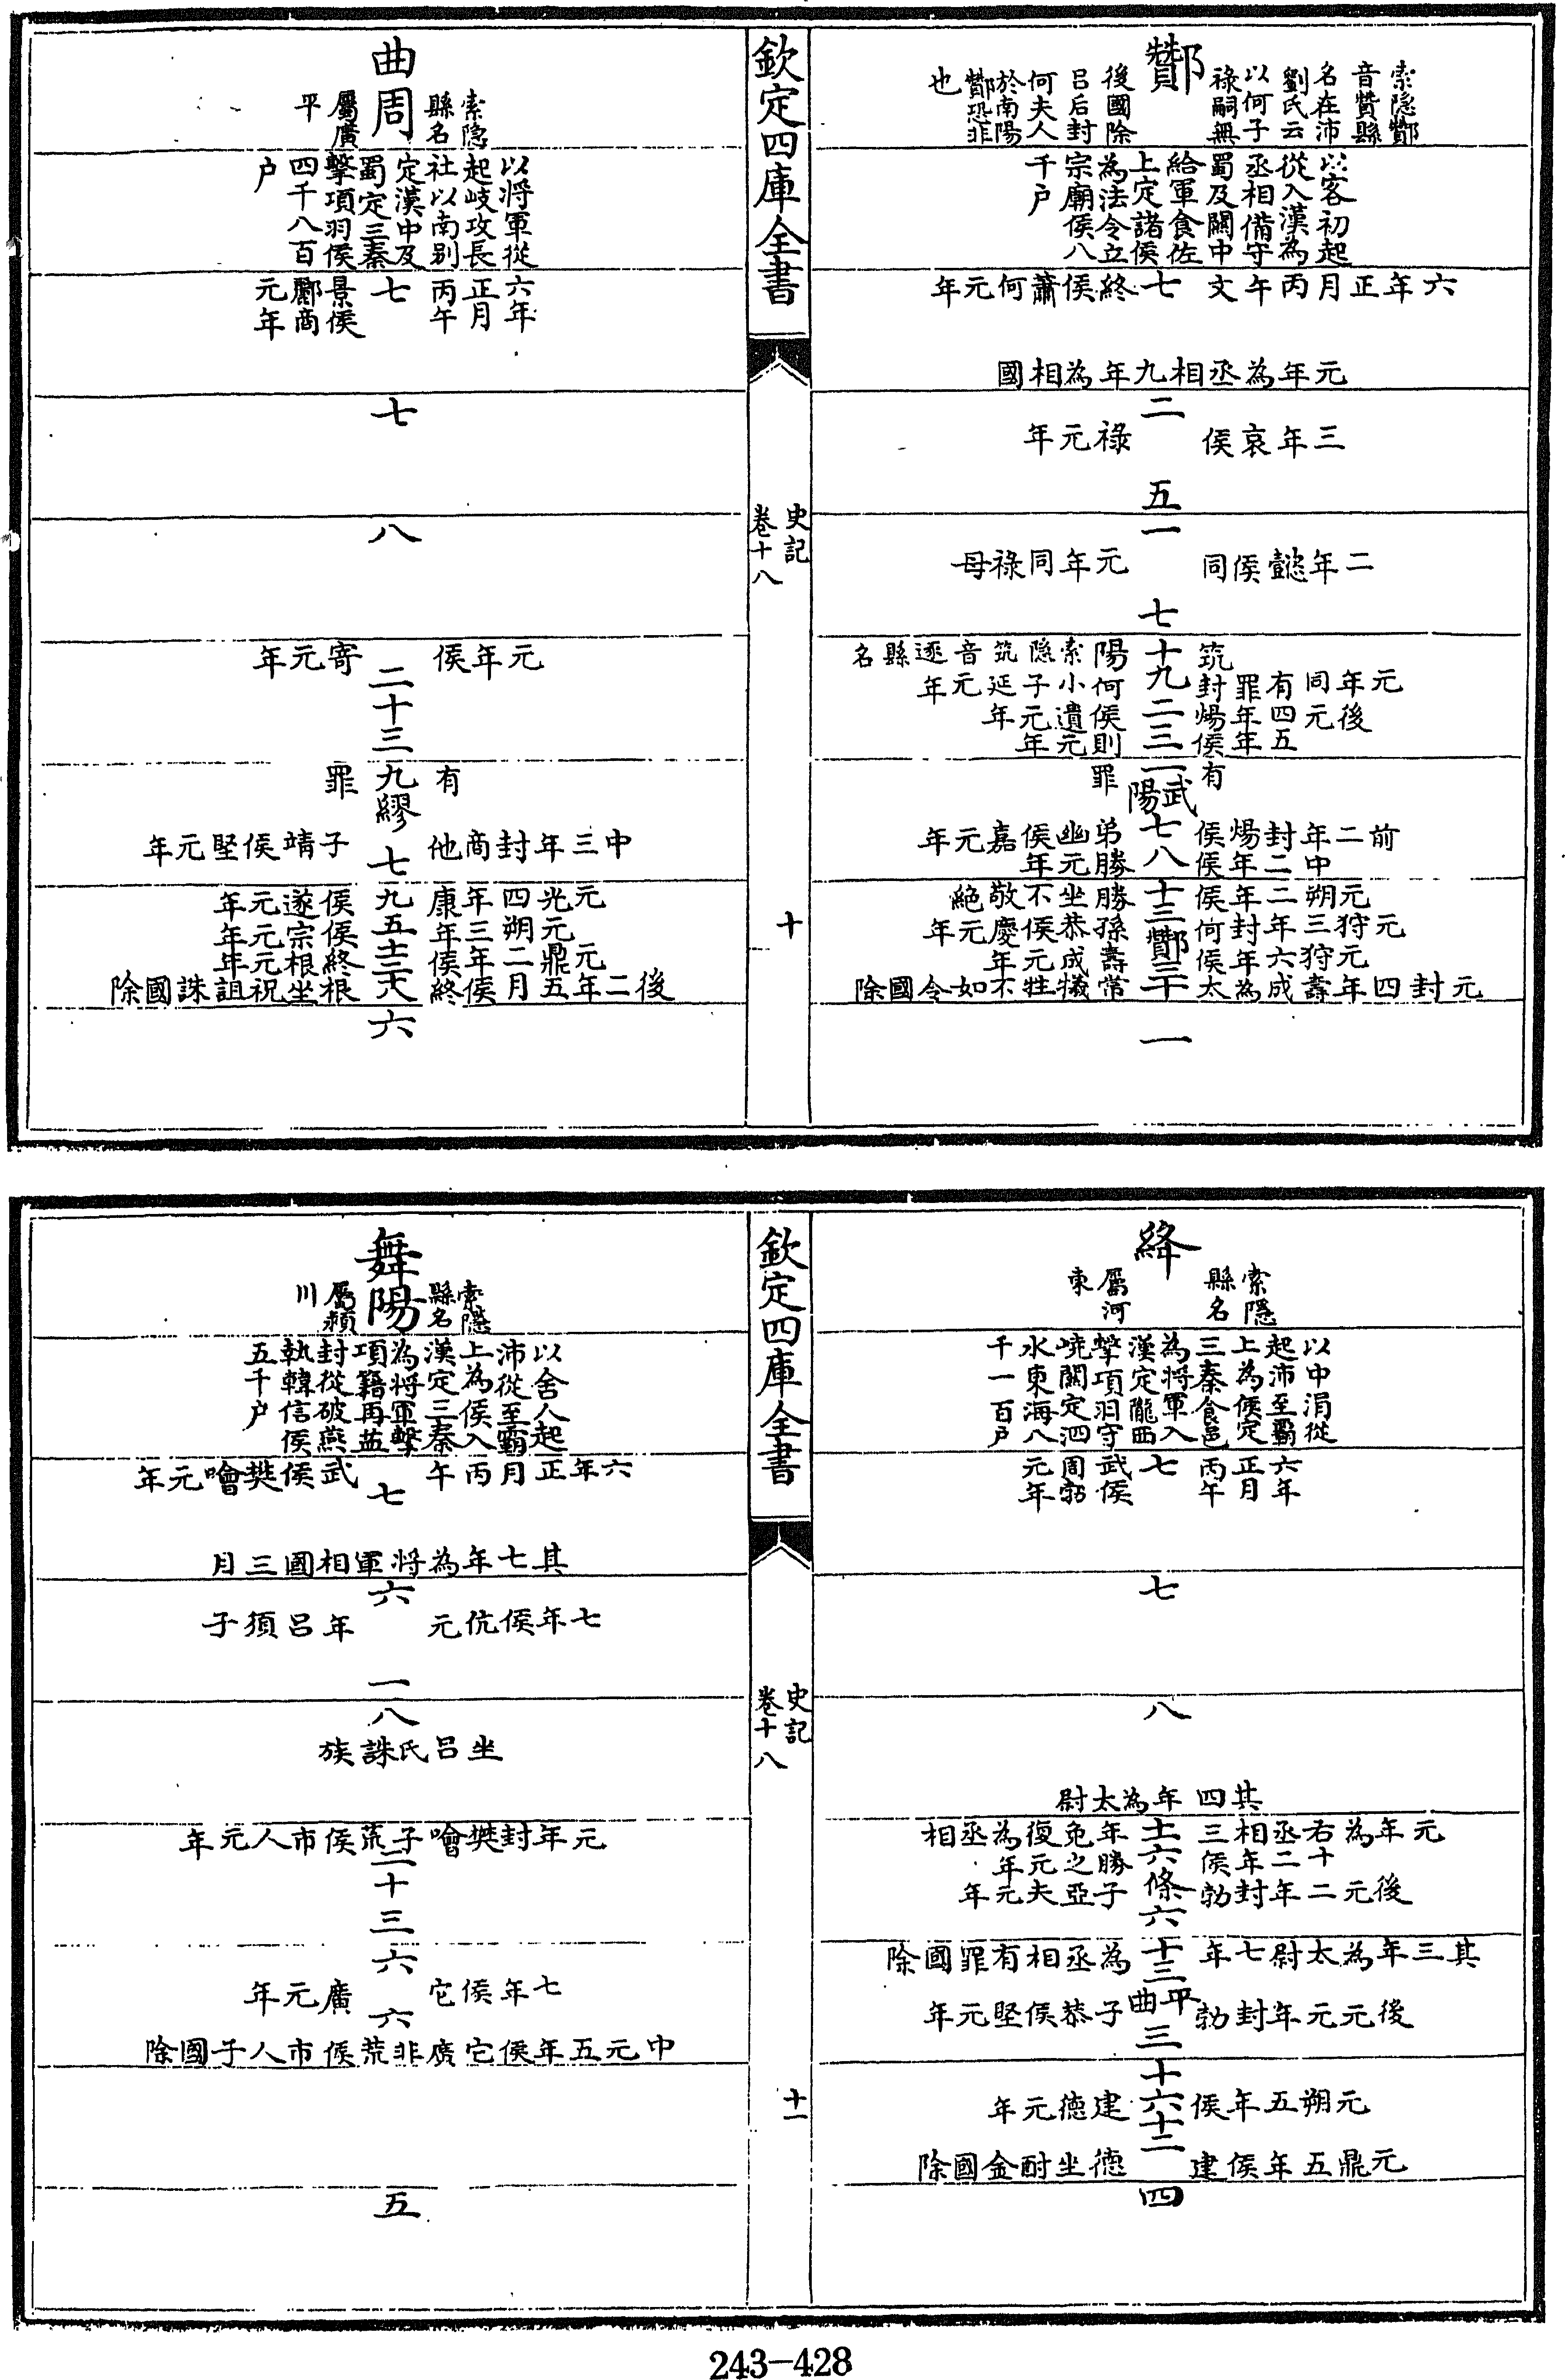 酇
索隱酇
音贊縣
名在沛
劉氏云
以何子
祿嗣無
後國除
吕后封
何夫人
於南陽
酇恐非
也
以客初起
從入漢為
丞相備守
蜀及關中
給軍食佐
上定諸侯
為法令立
宗廟侯八
千户
六年正月丙午文七終侯蕭何元年
元年為丞相九年為相國
二
三年哀侯祿元年
五
一
二年懿侯同元年同祿母
七
筑陽索隱筑音逐縣名
元年同有罪封何小子延元年
後元四年煬侯遺元年
五年侯則元年
十九二三
有罪
一武陽七八
前二年封煬侯弟幽侯嘉元年
中二年侯勝元年
元朔二年侯勝坐不敬絶
元狩三年封何孫恭侯慶元年
元狩六年侯壽成元年
元封四年壽成為太常犧牲不如令國除
十三酇三十
一
欽定四庫全書
史記
卷十八
十
曲周
索隱
縣名
屬廣
平
以将軍從
起岐攻長
社以南别
定漢中及
蜀定三秦
擊項羽侯
四千八百
户
六年
正月
丙午
七
景侯
酈商
元年
七
八
元年侯寄元年
二十三
有罪
九繆七
中三年封商他子靖侯堅元年
元光四年康侯遂元年
元朔三年侯宗元年
元鼎二年侯終根元年
後二年五月侯終根坐祝詛誅國除
九五十三六
六
絳
索隱
縣名
屬河
東
以中涓從
起沛至霸
上為侯定
三秦食邑
為将軍入
漢定隴西
擊項羽守
嶢關定泗
水東海八
千一百户
六年
正月
丙午
七
武侯
周勃
元年
七
八
其四年為太尉
元年為右丞相三年免復為丞相
十二年侯勝之元年
後元二年封勃子亞夫元年
十一六條六
其三年為太尉七年為丞相有罪國除
十三平曲三
後元元年封勃子恭侯堅元年
十六十二
元朔五年侯建德元年
元鼎五年侯建德坐酎金國除
四
欽定四庫全書
史記
卷十八
十一
舞陽
索隱
縣名
屬潁
川
以舍人起
沛從至霸
上為侯入
漢定三秦
為将軍擊
項籍再益
封從破燕
執韓信侯
五千户
六年正月丙午七武侯樊噲元年
其七年為将軍相國三月
六
七年侯伉元年吕須子
一
八
坐吕氏誅族
元年封樊噲子荒侯市人元年
二十三
六
七年侯它廣元年
六
中元五年侯它廣非荒侯市人子國除
五
243-428